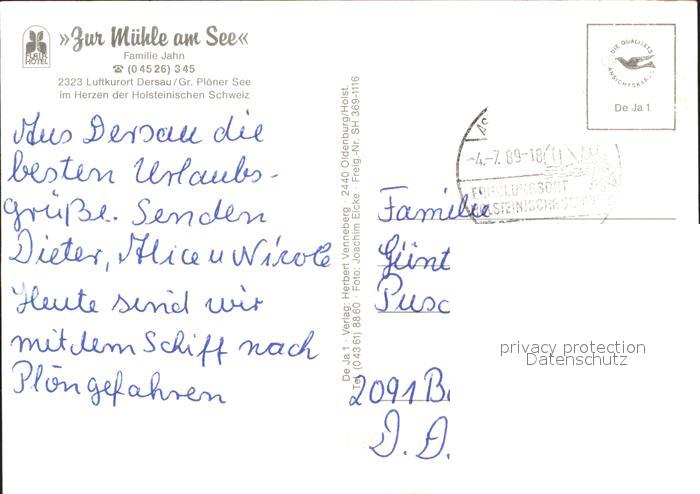 »Zur Mühle am See«
FLAIR
HOTEL
Familie Jahn
☎ (0 45 26) 3 45
2323 Luftkurort Dersau/Gr. Plöner See
im Herzen der Holsteinischen Schweiz
Aus Dersau die
besten Urlaubs-
grüße. Senden
Dieter, Alice u Nicole
Heute sind wir
mit dem Schiff nach
Plön gefahren
De Ja 1 · Verlag: Herbert Venneberg · 2440 Oldenburg/Holst.
Tel. (0 43 61) 88 60 · Foto: Joachim Eicke · Freig.-Nr. SH 369-1116
DIE QUALITÄTS
ANSICHTSKARTE
De Ja 1
-4.-7.89-18
ERHOLUNGSORT
HOLSTEINISCHE SCHWEIZ
Familie
Günt
Pusc
2091 B
D. D.
privacy protection
Datenschutz